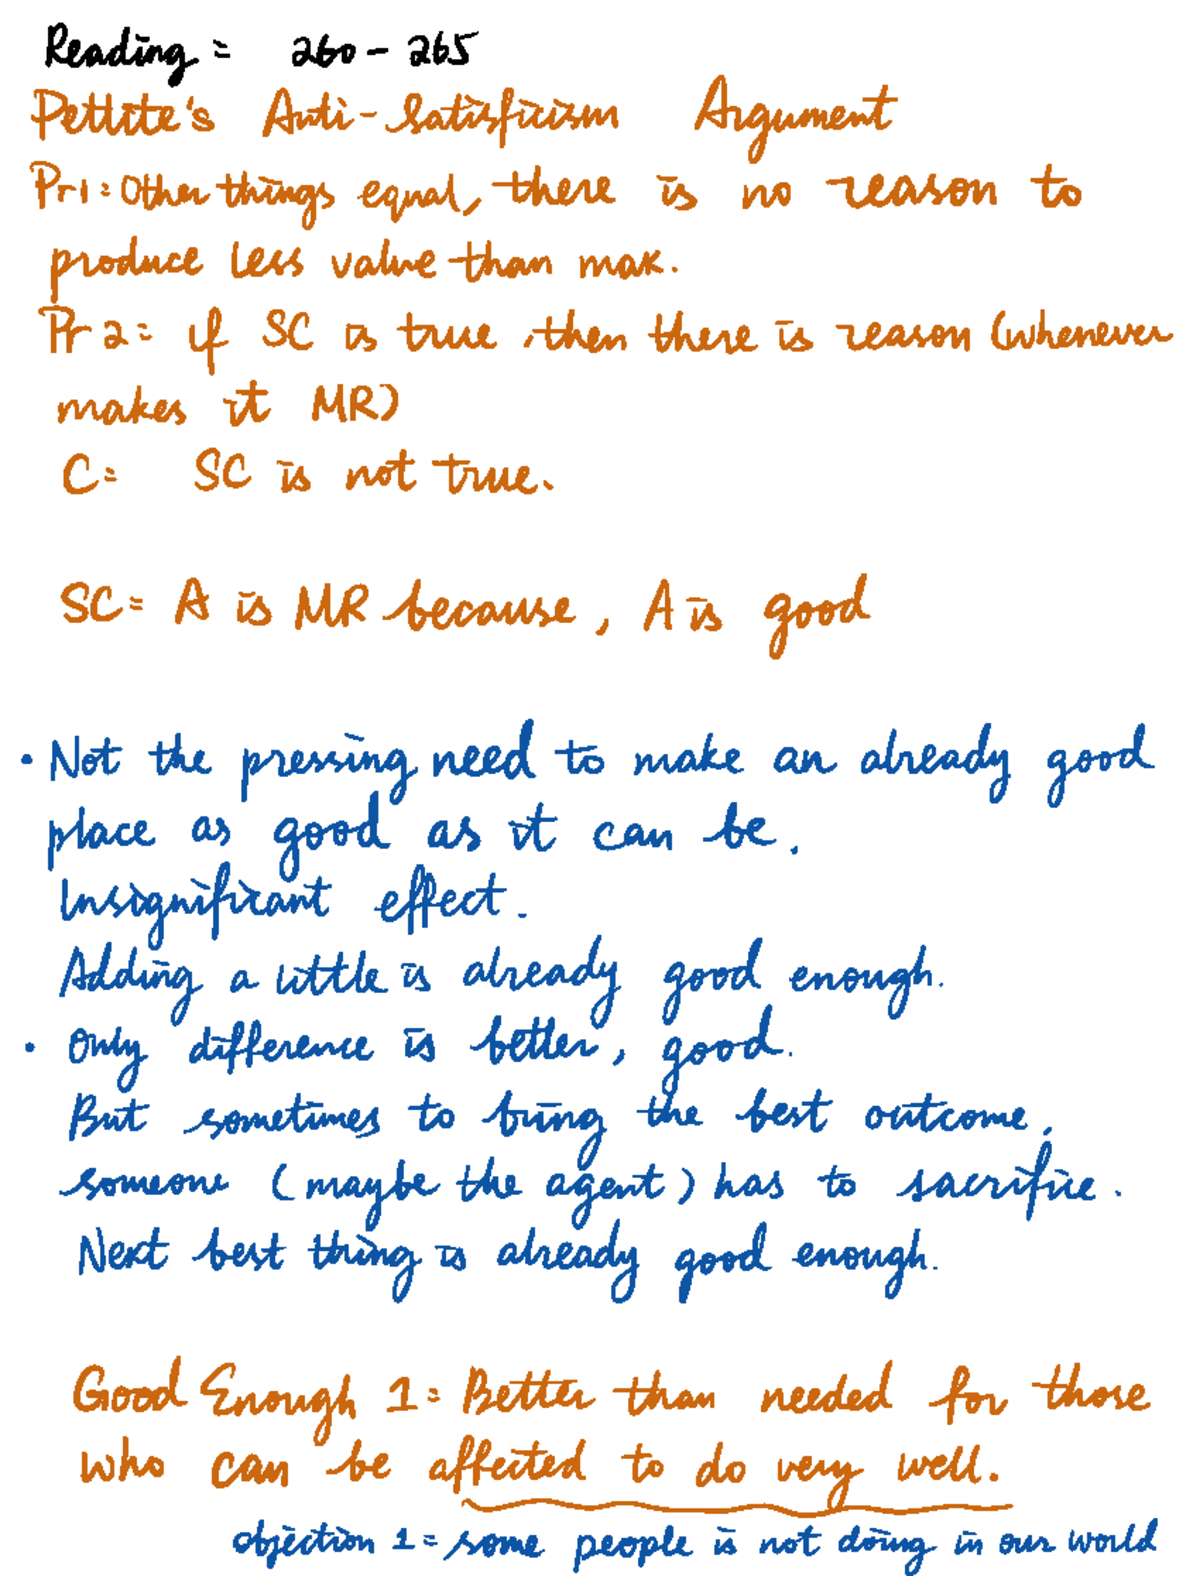 Reading = 260 - 265
Pettite's Anti-Satisficism Argument
Pr1: Other things equal, there is no reason to
produce less value than max.
Pr 2 = if SC is true, then there is reason (whenever
makes it MR)
C = SC is not true.
SC = A is MR because, A is good
• Not the pressing need to make an already good
place as good as it can be.
Insignificant effect.
Adding a little is already good enough.
• Only difference is better, good.
But sometimes to bring the best outcome,
someone (maybe the agent) has to sacrifice.
Next best thing is already good enough.
Good Enough 1 = Better than needed for those
who can be affected to do very well.
objection 1 = some people is not doing in our world